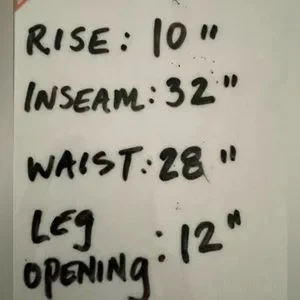 RISE: 10"
INSEAM: 32"
WAIST: 28"
LEG
OPENING: 12"